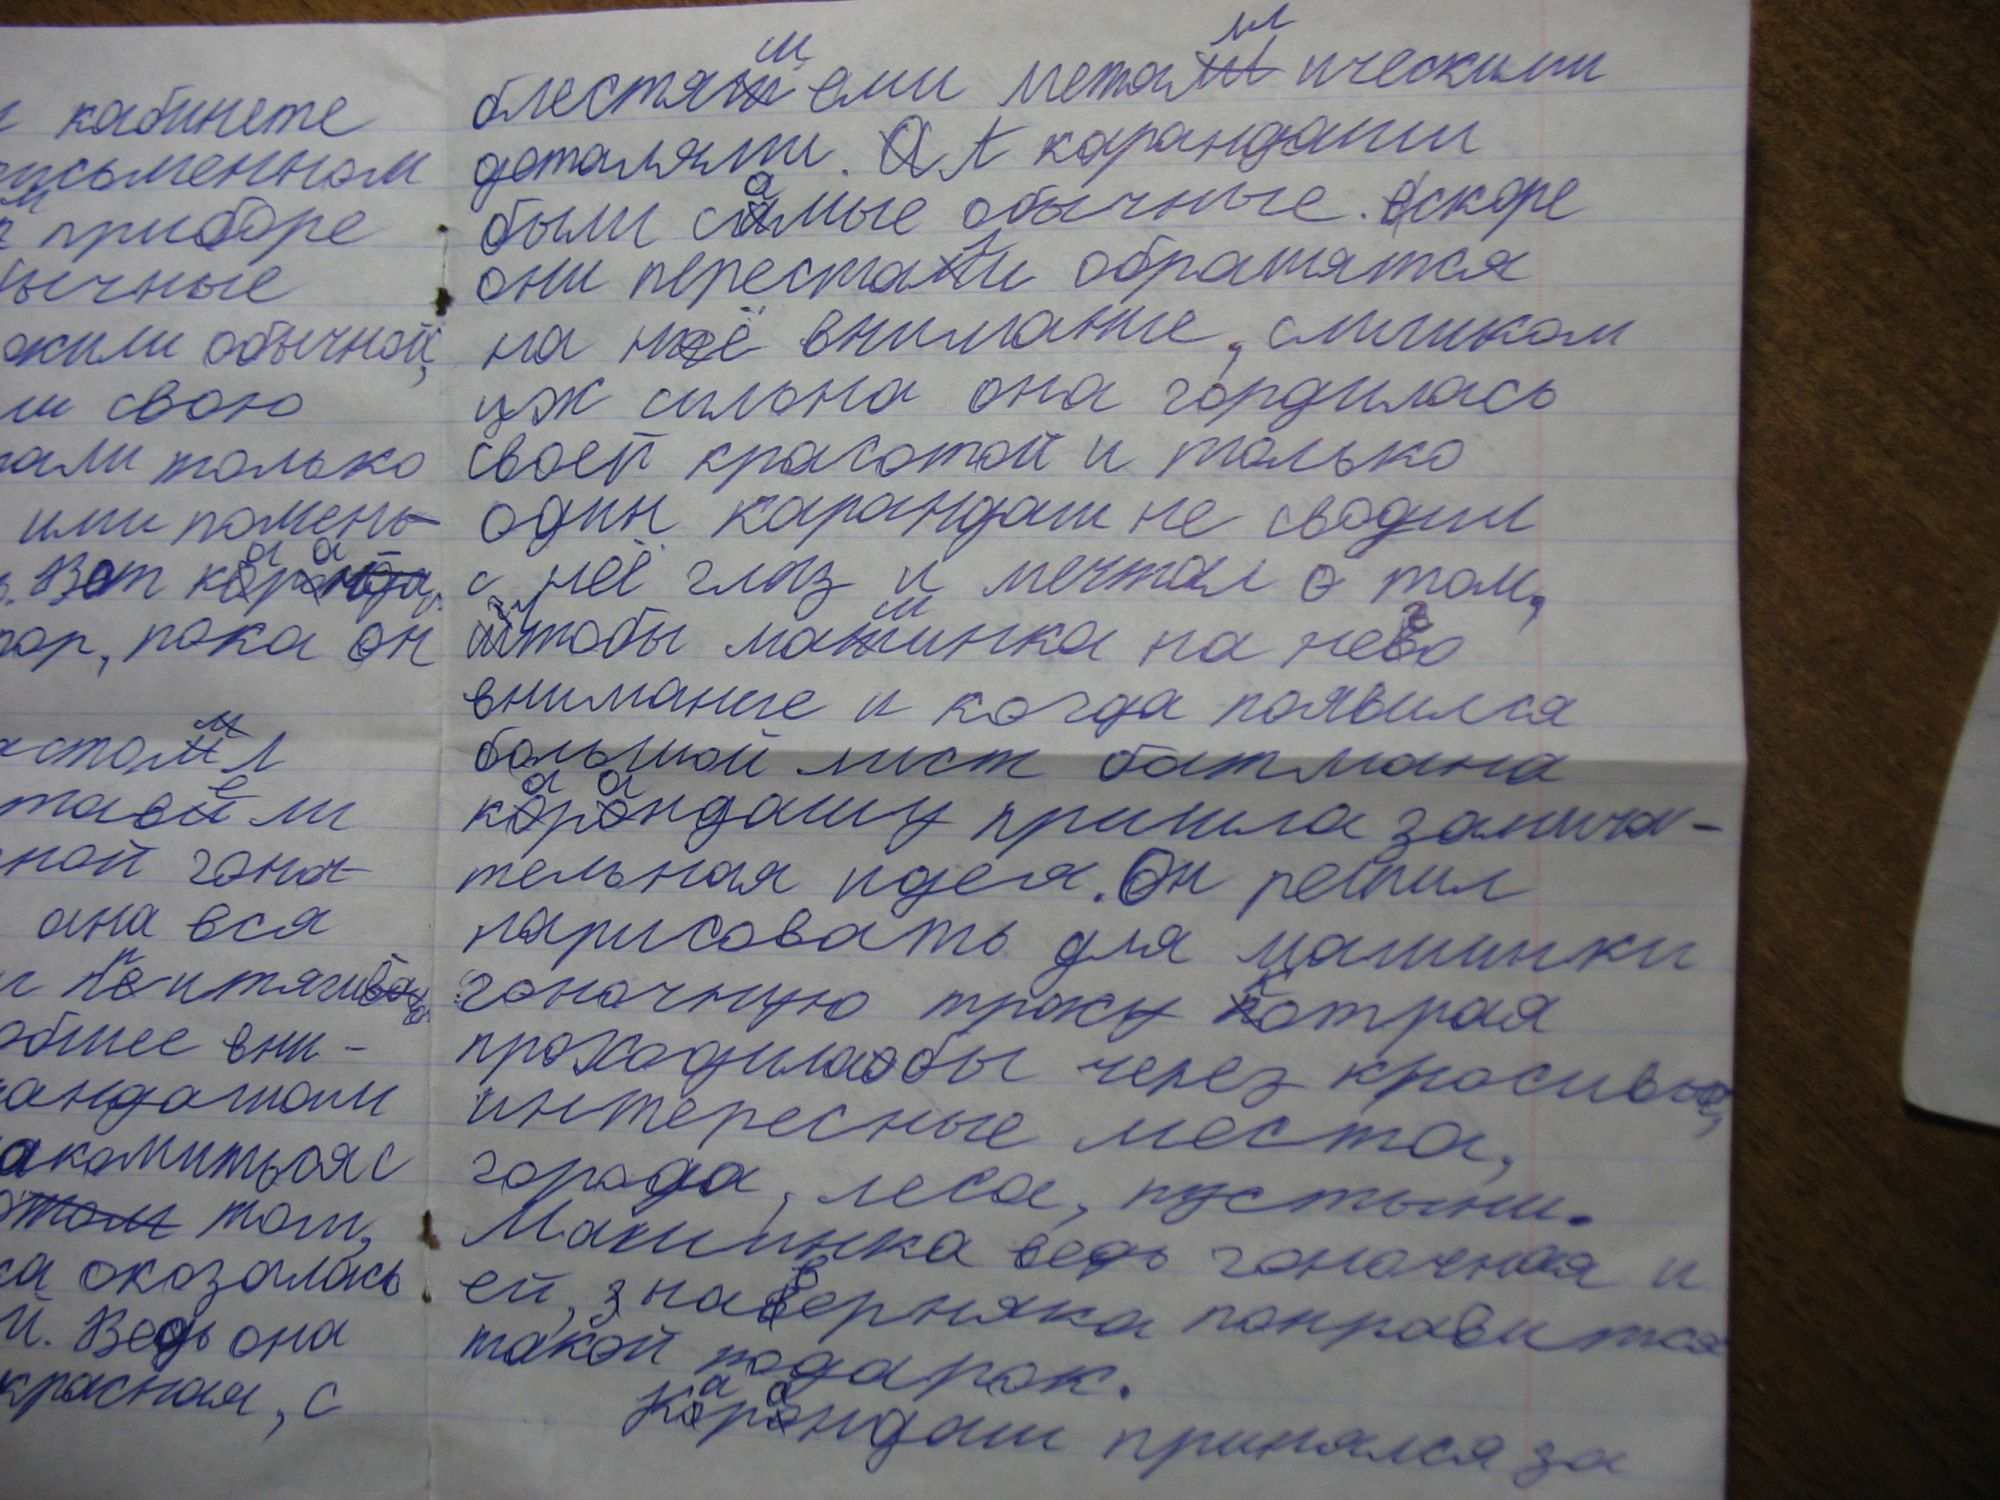 кабинете
письменном
приборе
бычные
жили обычной,
ли свою
тали только
ими помень-
Вот каранда
пор, пока он
ной гона-
она вся
притягива
общее вни-
андашом
акомиться с
том,
са окозалась
й. Ведь она
красная, с
блестящеми металическими
деталями. А карандаши
были самые обычные. вскоре
они перестали обращятся
на неё внимание, слишком
уж сильна она гордилась
своей красотой и только
один карандаш не сводил
с неё глаз и мечтал о том,
чтобы машинка на него
внимание и когда появился
большой лист батмана
карандашу пришла замича-
тельная идея. Он решил
нарисовать для машинки
гоночную траку котрая
проходилабы через красивые,
интересные места,
города, леса, пустыни.
Машинка ведь гоначная и
ей, знаверняка понравится
такой подарок.
Карандаш принялся за